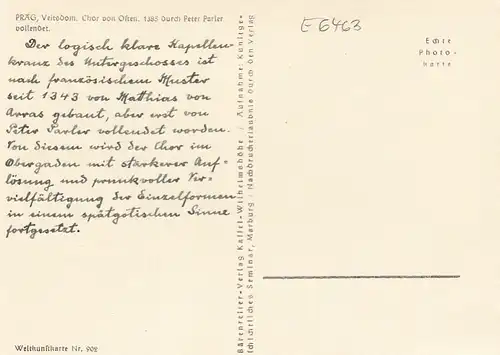 PRAG, Veitsdom. Chor von Osten. 1385 durch Peter Parler
vollendet.
Der logisch klare Kapellen-
kranz des Untergeschosses ist
nach französischem Muster
seit 1343 von Matthias von
Arras gebaut, aber erst von
Peter Parler vollendet worden.
Von diesem wird der Chor im
Obergaden mit stärkerer Auf=
lösung und prunkvoller Ver=
vielfältigung der Einzelformen
in einem spätgotischen Sinne
fortgesetzt.
Weltkunstkarte Nr. 902
Bärenreiter-Verlag Kassel-Wilhelmshöhe / Aufnahme: Kunstge-
schichtliches Seminar, Marburg / Nachdruckerlaubnis durch den Verlag
E 6463
Echte
Photo-
karte